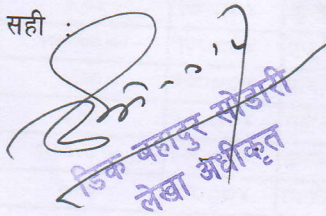 सही :
डिक बहादुर सोडारी
लेखा अधीकृत